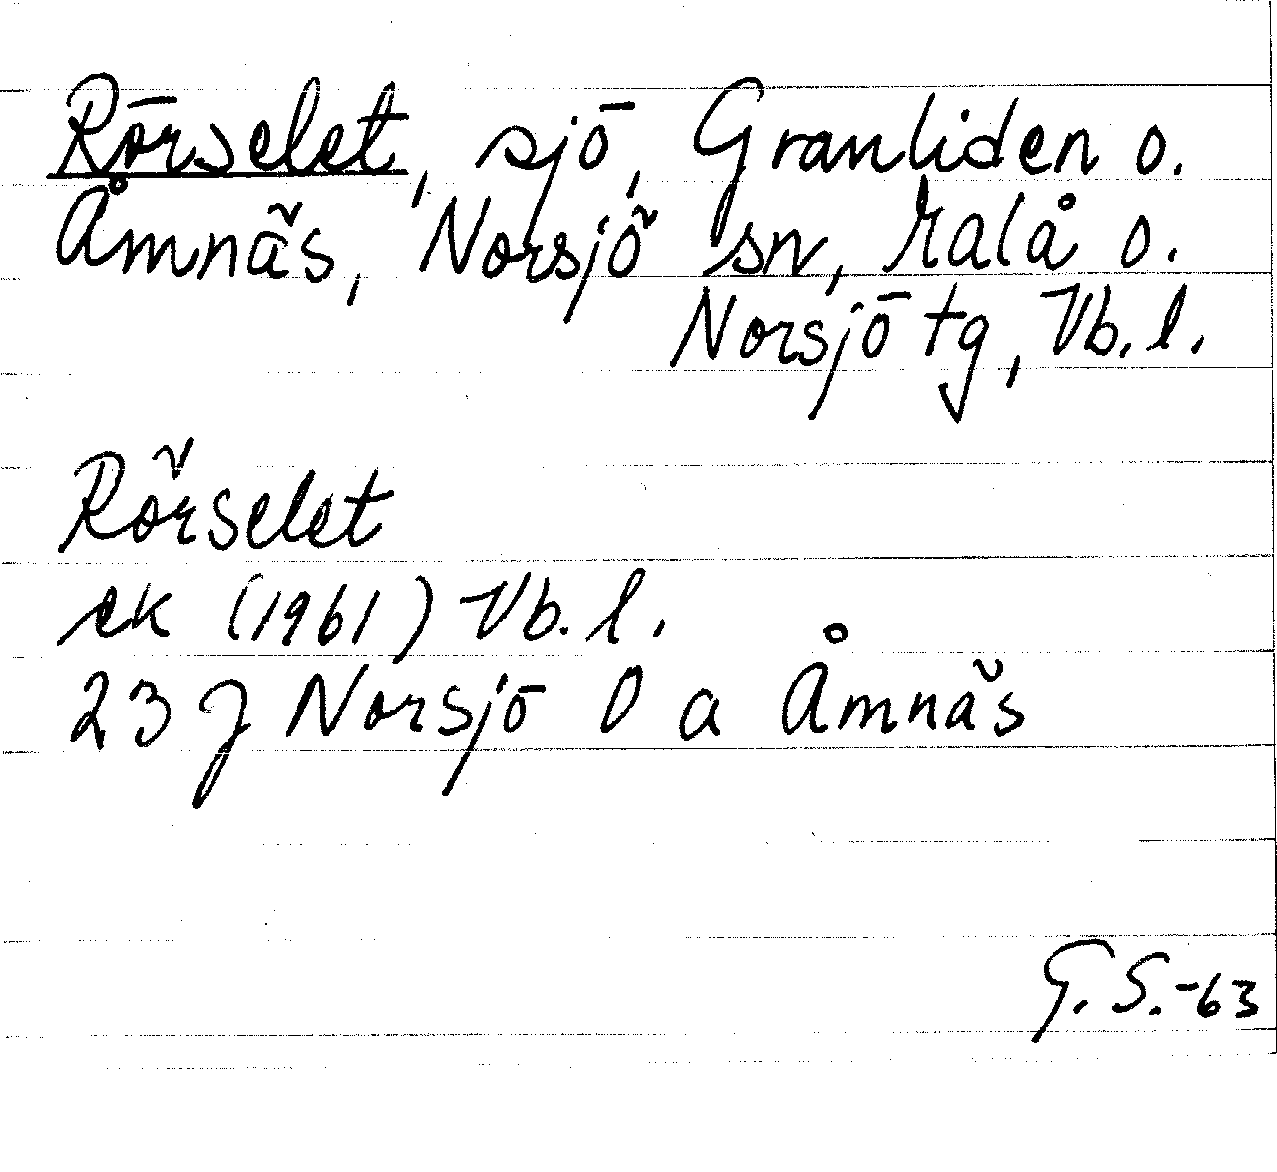 Rörselet, sjö, Granliden o.
Åmnäs, Norsjö sn, Malå o.
Norsjö tg, Vb. l.
Rörselet
ek (1961) Vb. l.
23 J Norsjö 0 a Åmnäs
G. S.-63